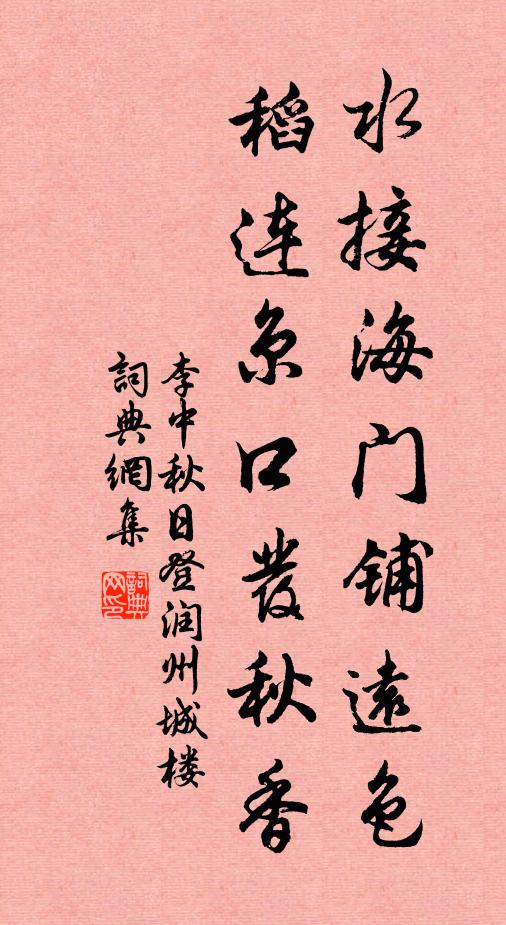 水接海门铺遠色
稻连京口發秋香
李中秋日登润州城楼
詞典網集
詞典网印